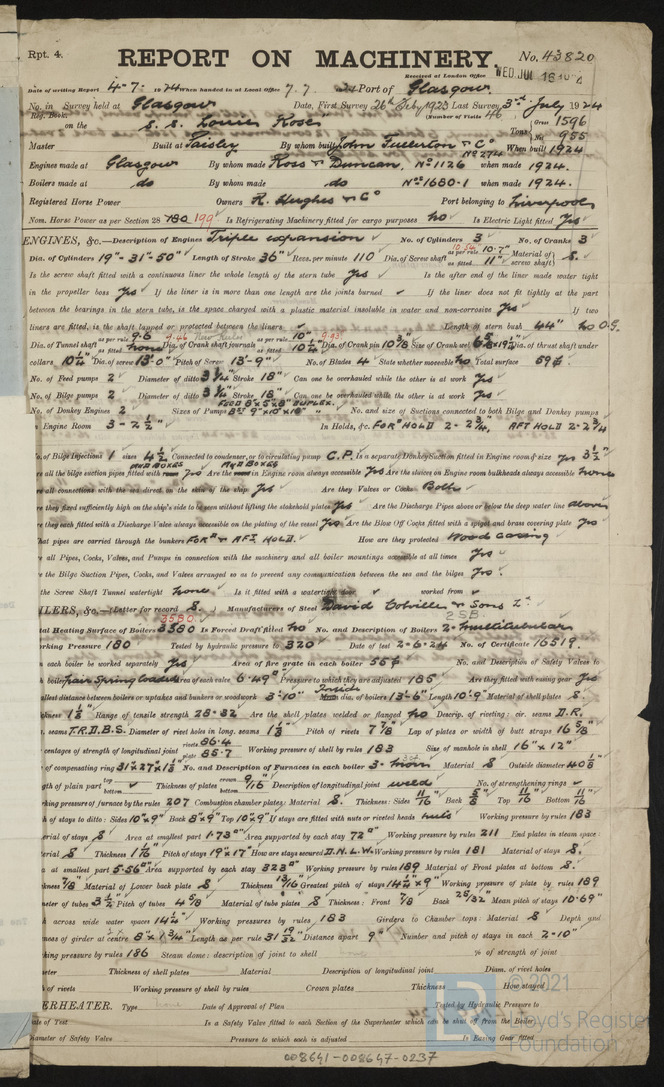 Rpt. 4.
REPORT ON MACHINERY.
No. 43820
Received at London Office WED. JUL 16 1924
Date of writing Report 4-7-1924 When handed in at Local Office 7.7. Port of Glasgow.
No. in Survey held at Glasgow Date, First Survey 26th Feby 1923 Last Survey 3rd July 1924
Reg. Book. (Number of Visits 46
on the S.S. Louis Rose Tons { Gross 1596 Net 955
Master Built at Paisley By whom built John Fullerton & Co No 274 When built 1924
Engines made at Glasgow By whom made Ross & Duncan, No 1126 when made 1924.
Boilers made at do By whom made do No 1680-1 when made 1924.
Registered Horse Power Owners R. Hughes & Co Port belonging to Liverpool
Nom. Horse Power as per Section 28 180 199 Is Refrigerating Machinery fitted for cargo purposes no Is Electric Light fitted Yes
ENGINES, &c.—Description of Engines Triple expansion No. of Cylinders 3 No. of Cranks 3
Dia. of Cylinders 19"-31"-50" Length of Stroke 36" Revs. per minute 110 Dia. of Screw shaft as per rule 10.7" as fitted 11" Material of screw shaft S.
Is the screw shaft fitted with a continuous liner the whole length of the stern tube Yes Is the after end of the liner made water tight
in the propeller boss Yes If the liner is in more than one length are the joints burned If the liner does not fit tightly at the part
between the bearings in the stern tube, is the space charged with a plastic material insoluble in water and non-corrosive Yes If two
liners are fitted, is the shaft lapped or protected between the liners Length of stern bush 44" no O.G.
Dia. of Tunnel shaft as per rule 9.6 as fitted none Dia. of Crank shaft journals as per rule 10" as fitted 10 1/4" Dia. of Crank pin 10 3/8" Size of Crank webs Dia. of thrust shaft under
collars 10 1/4" Dia. of screw 13'-0" Pitch of Screw 13'-9" No. of Blades 4 State whether moveable no Total surface 59
No. of Feed pumps 2 Diameter of ditto 3 1/4" Stroke 18" Can one be overhauled while the other is at work Yes
No. of Bilge pumps 2 Diameter of ditto 3 1/4" Stroke 18" Can one be overhauled while the other is at work Yes
No. of Donkey Engines 2 Sizes of Pumps No. and size of Suctions connected to both Bilge and Donkey pumps
n Engine Room 3-2 1/2" In Holds, &c. For'd Hold 2-2 3/4" Aft Hold 2-2 3/4
o. of Bilge Injections 1 sizes 4 1/2" Connected to condenser, or to circulating pump C.P. Is a separate Donkey Suction fitted in Engine room & size Yes 3 1/2"
re all the bilge suction pipes fitted with Mud Boxes Yes Are the Mud Boxes in Engine room always accessible Yes Are the sluices on Engine room bulkheads always accessible none
re all connections with the sea direct on the skin of the ship Yes Are they Valves or Cocks Both
re they fixed sufficiently high on the ship's side to be seen without lifting the stokehold plates Yes Are the Discharge Pipes above or below the deep water line above
re they each fitted with a Discharge Valve always accessible on the plating of the vessel Yes Are the Blow Off Cocks fitted with a spigot and brass covering plate Yes
hat pipes are carried through the bunkers For'd & Aft Hold. How are they protected Wood casing
re all Pipes, Cocks, Valves, and Pumps in connection with the machinery and all boiler mountings accessible at all times Yes
re the Bilge Suction Pipes, Cocks, and Valves arranged so as to prevent any communication between the sea and the bilges Yes.
the Screw Shaft Tunnel watertight none Is it fitted with a watertight door worked from
ILERS, &c.—(Letter for record S. Manufacturers of Steel David Colville & Sons Ld
tal Heating Surface of Boilers 3580 Is Forced Draft fitted no No. and Description of Boilers 2-multitubular 2SB
rking Pressure 180 Tested by hydraulic pressure to 320 Date of test 2-6-24 No. of Certificate 16519.
n each boiler be worked separately Yes Area of fire grate in each boiler 55 No. and Description of Safety Valves to
h boiler pair spring loaded Area of each valve 6.49 Pressure to which they are adjusted 185 Are they fitted with easing gear Yes
allest distance between boilers or uptakes and bunkers or woodwork 3'-10" Inside dia. of boilers 13'-6" Length 10'-9" Material of shell plates S.
ckness 1 1/8" Range of tensile strength 28-32 Are the shell plates welded or flanged no Descrip. of riveting: cir. seams D.R.
. seams T.R.D.B.S. Diameter of rivet holes in long. seams 1 1/8" Pitch of rivets 7 7/8 Lap of plates or width of butt straps 16 5/8"
centages of strength of longitudinal joint rivets 86.4 plate 85.7 Working pressure of shell by rules 183 Size of manhole in shell 16" x 12"
of compensating ring 31"x27"x1 1/8" No. and Description of Furnaces in each boiler 3- Material S Outside diameter 40 5/8"
gth of plain part top bottom Thickness of plates crown bottom 9/16 Description of longitudinal joint weld No. of strengthening rings
rking pressure of furnace by the rules 207 Combustion chamber plates: Material S. Thickness: Sides 11/16" Back 5/8" Top 11/16" Bottom 11/16"
h of stays to ditto: Sides 10"x9" Back 8"x9" Top 10"x9" If stays are fitted with nuts or riveted heads nuts Working pressure by rules 183
erial of stays S Area at smallest part 1.73" Area supported by each stay 72" Working pressure by rules 211 End plates in steam space:
erial S Thickness 1 1/16" Pitch of stays 19"x17" How are stays secured D.N.L.W. Working pressure by rules 181 Material of stays S.
a at smallest part 5.56" Area supported by each stay 323 Working pressure by rules 189 Material of Front plates at bottom S.
kness 7/8" Material of Lower back plate S Thickness 13/16" Greatest pitch of stays 14 1/4"x9" Working pressure of plate by rules 189
meter of tubes 3 1/2" Pitch of tubes 4 5/8 Material of tube plates S Thickness: Front 7/8" Back 25/32" Mean pitch of stays 10.69"
h across wide water spaces 14 1/4" Working pressures by rules 183 Girders to Chamber tops: Material S Depth and
ness of girder at centre 8"x1 3/4" Length as per rule 31 19/32" Distance apart 9" Number and pitch of stays in each 2-10"
king pressure by rules 186 Steam dome: description of joint to shell % of strength of joint
meter Thickness of shell plates Material Description of longitudinal joint Diam. of rivet holes
h of rivets Working pressure of shell by rules Crown plates Thickness How stayed
ERHEATER. Type Date of Approval of Plan Tested by Hydraulic Pressure to
ate of Test Is a Safety Valve fitted to each Section of the Superheater which can be shut off from the Boiler
Diameter of Safety Valve Pressure to which each is adjusted Is Easing Gear fitted
© 2021
Lloyd's Register
Foundation
008641-008647-0237